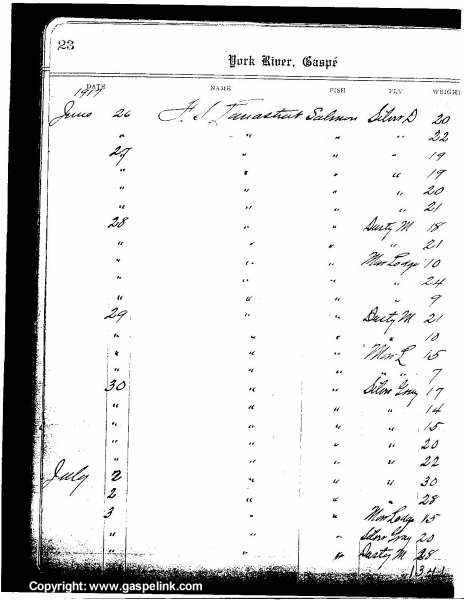 23
York River, Gaspé
1917
DATE NAME FISH FLY WEIGHT
June 26 Salmon Silver D 20
" " " " 22
27 " " " 19
" " " " 19
" " " " 20
" " " " 21
28 " " Dusty M 18
" " " " 21
" " " 10
" " " " 24
" " " 9
29 " " Dusty M 21
" " " " 10
" " " L 15
" " " " " 7
30 " " Silver Gray 17
" " " " 14
" " " " 15
" " " " 20
" " " " 22
July 2 " " " 30
2 " " " 28
3 " " 15
" " " Silver Gray 20
" " " Dusty M 28
Copyright: www.gaspelink.com